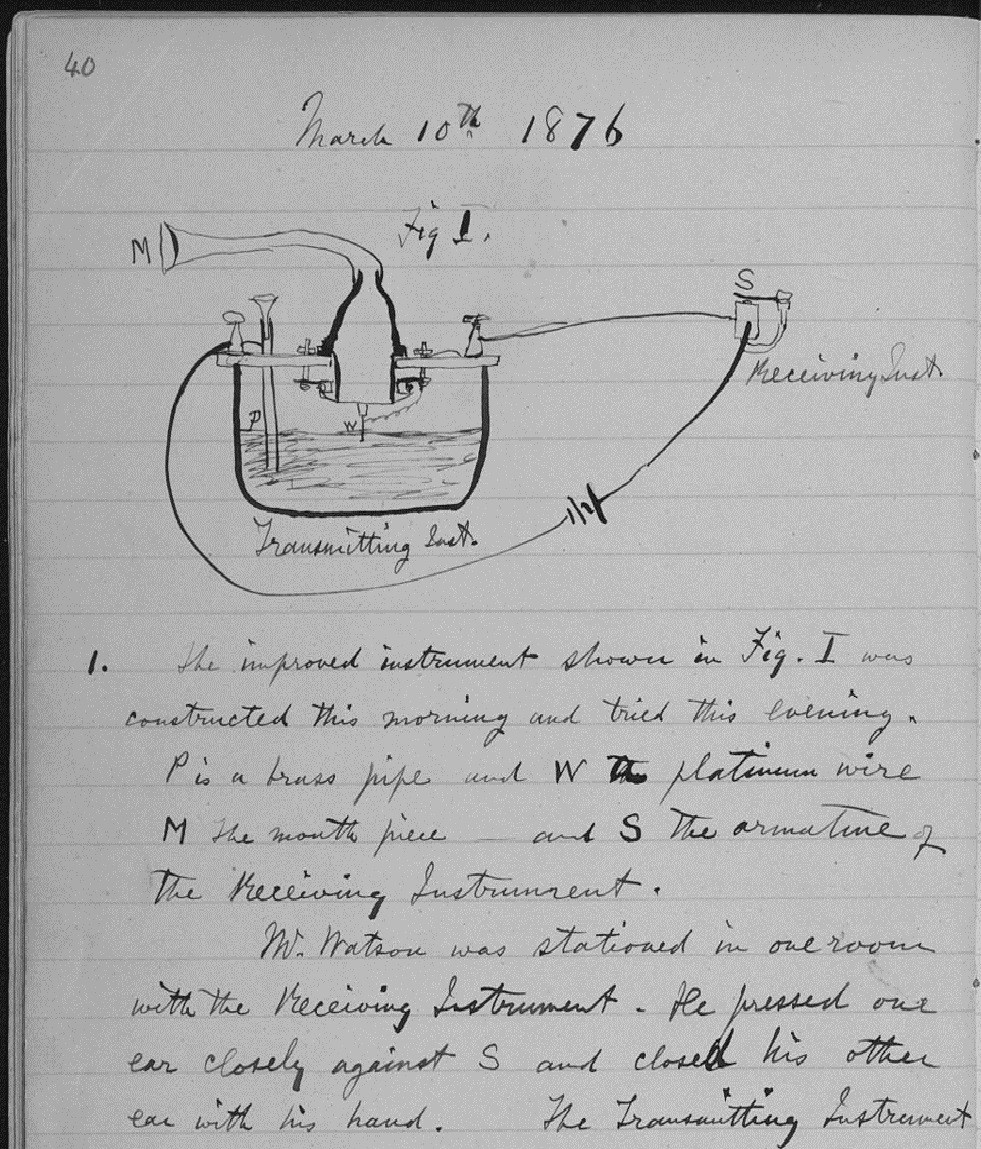 40
March 10th 1876
Fig 1.
M
S
Receiving Inst.
P
W
Transmitting Inst.
1. The improved instrument shown in Fig. I was
constructed this morning and tried this evening.
P is a brass pipe and W the platinum wire
M the mouth piece — and S the armature of
the Receiving Instrument.
Mr. Watson was stationed in one room
with the Receiving Instrument. He pressed one
ear closely against S and closed his other
ear with his hand. The Transmitting Instrument